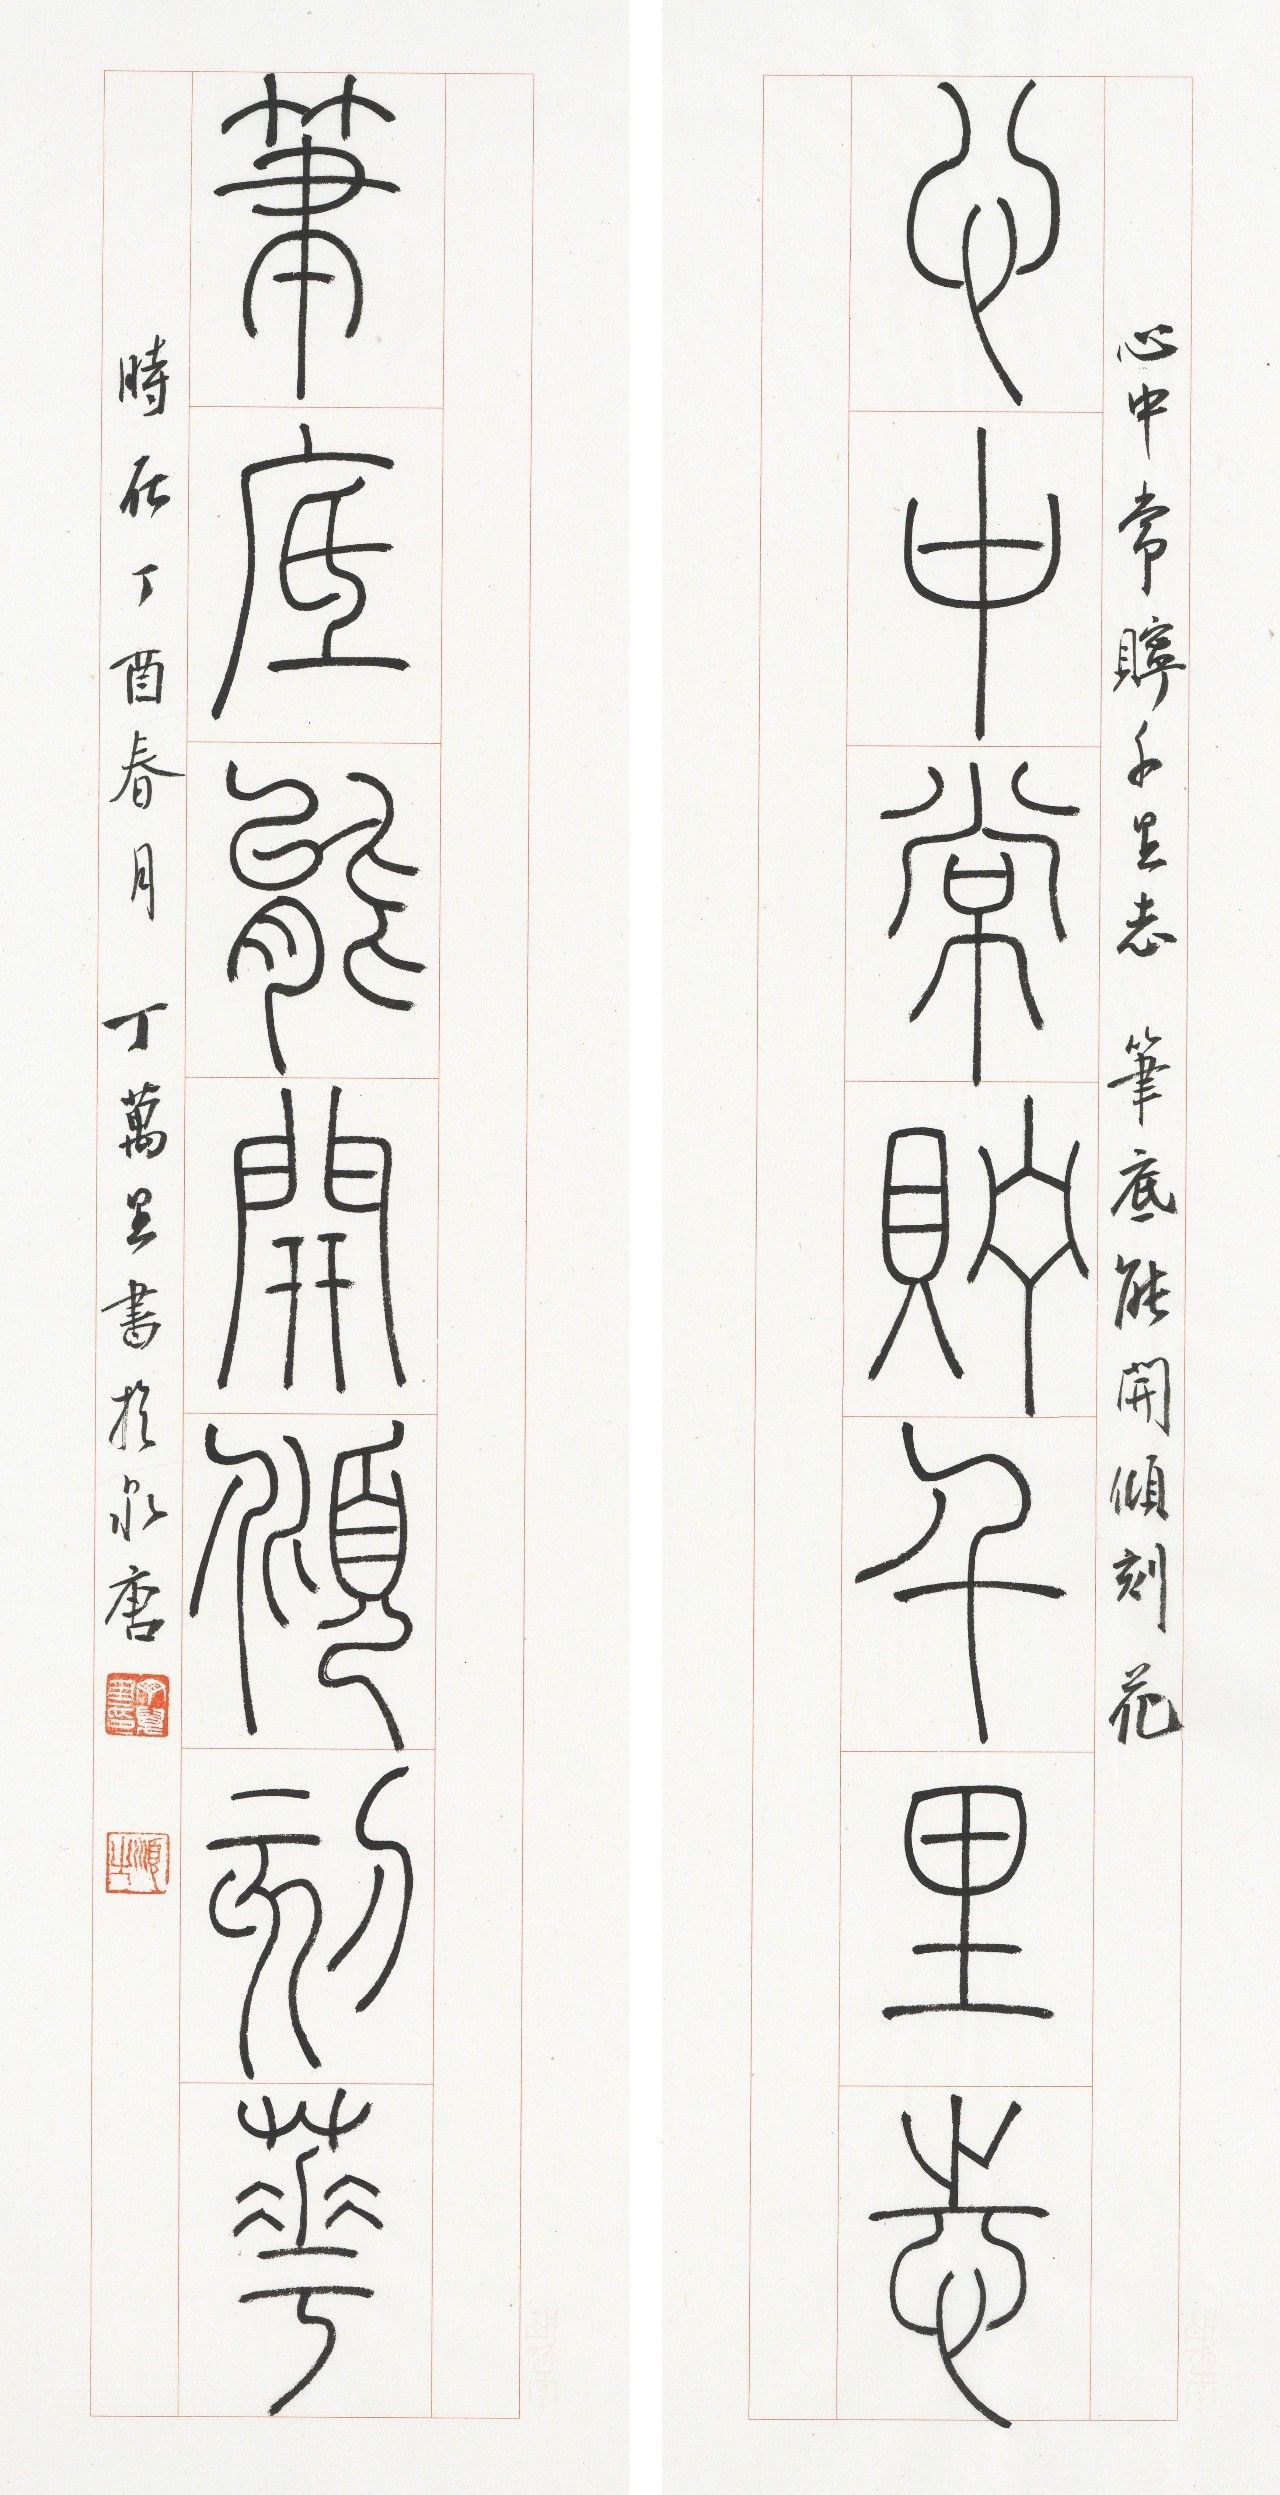 心中常貯千里志
心中常貯千里志 筆底能開傾刻花
筆底能開傾刻華
時在丁酉春月 丁萬里書於泉唐